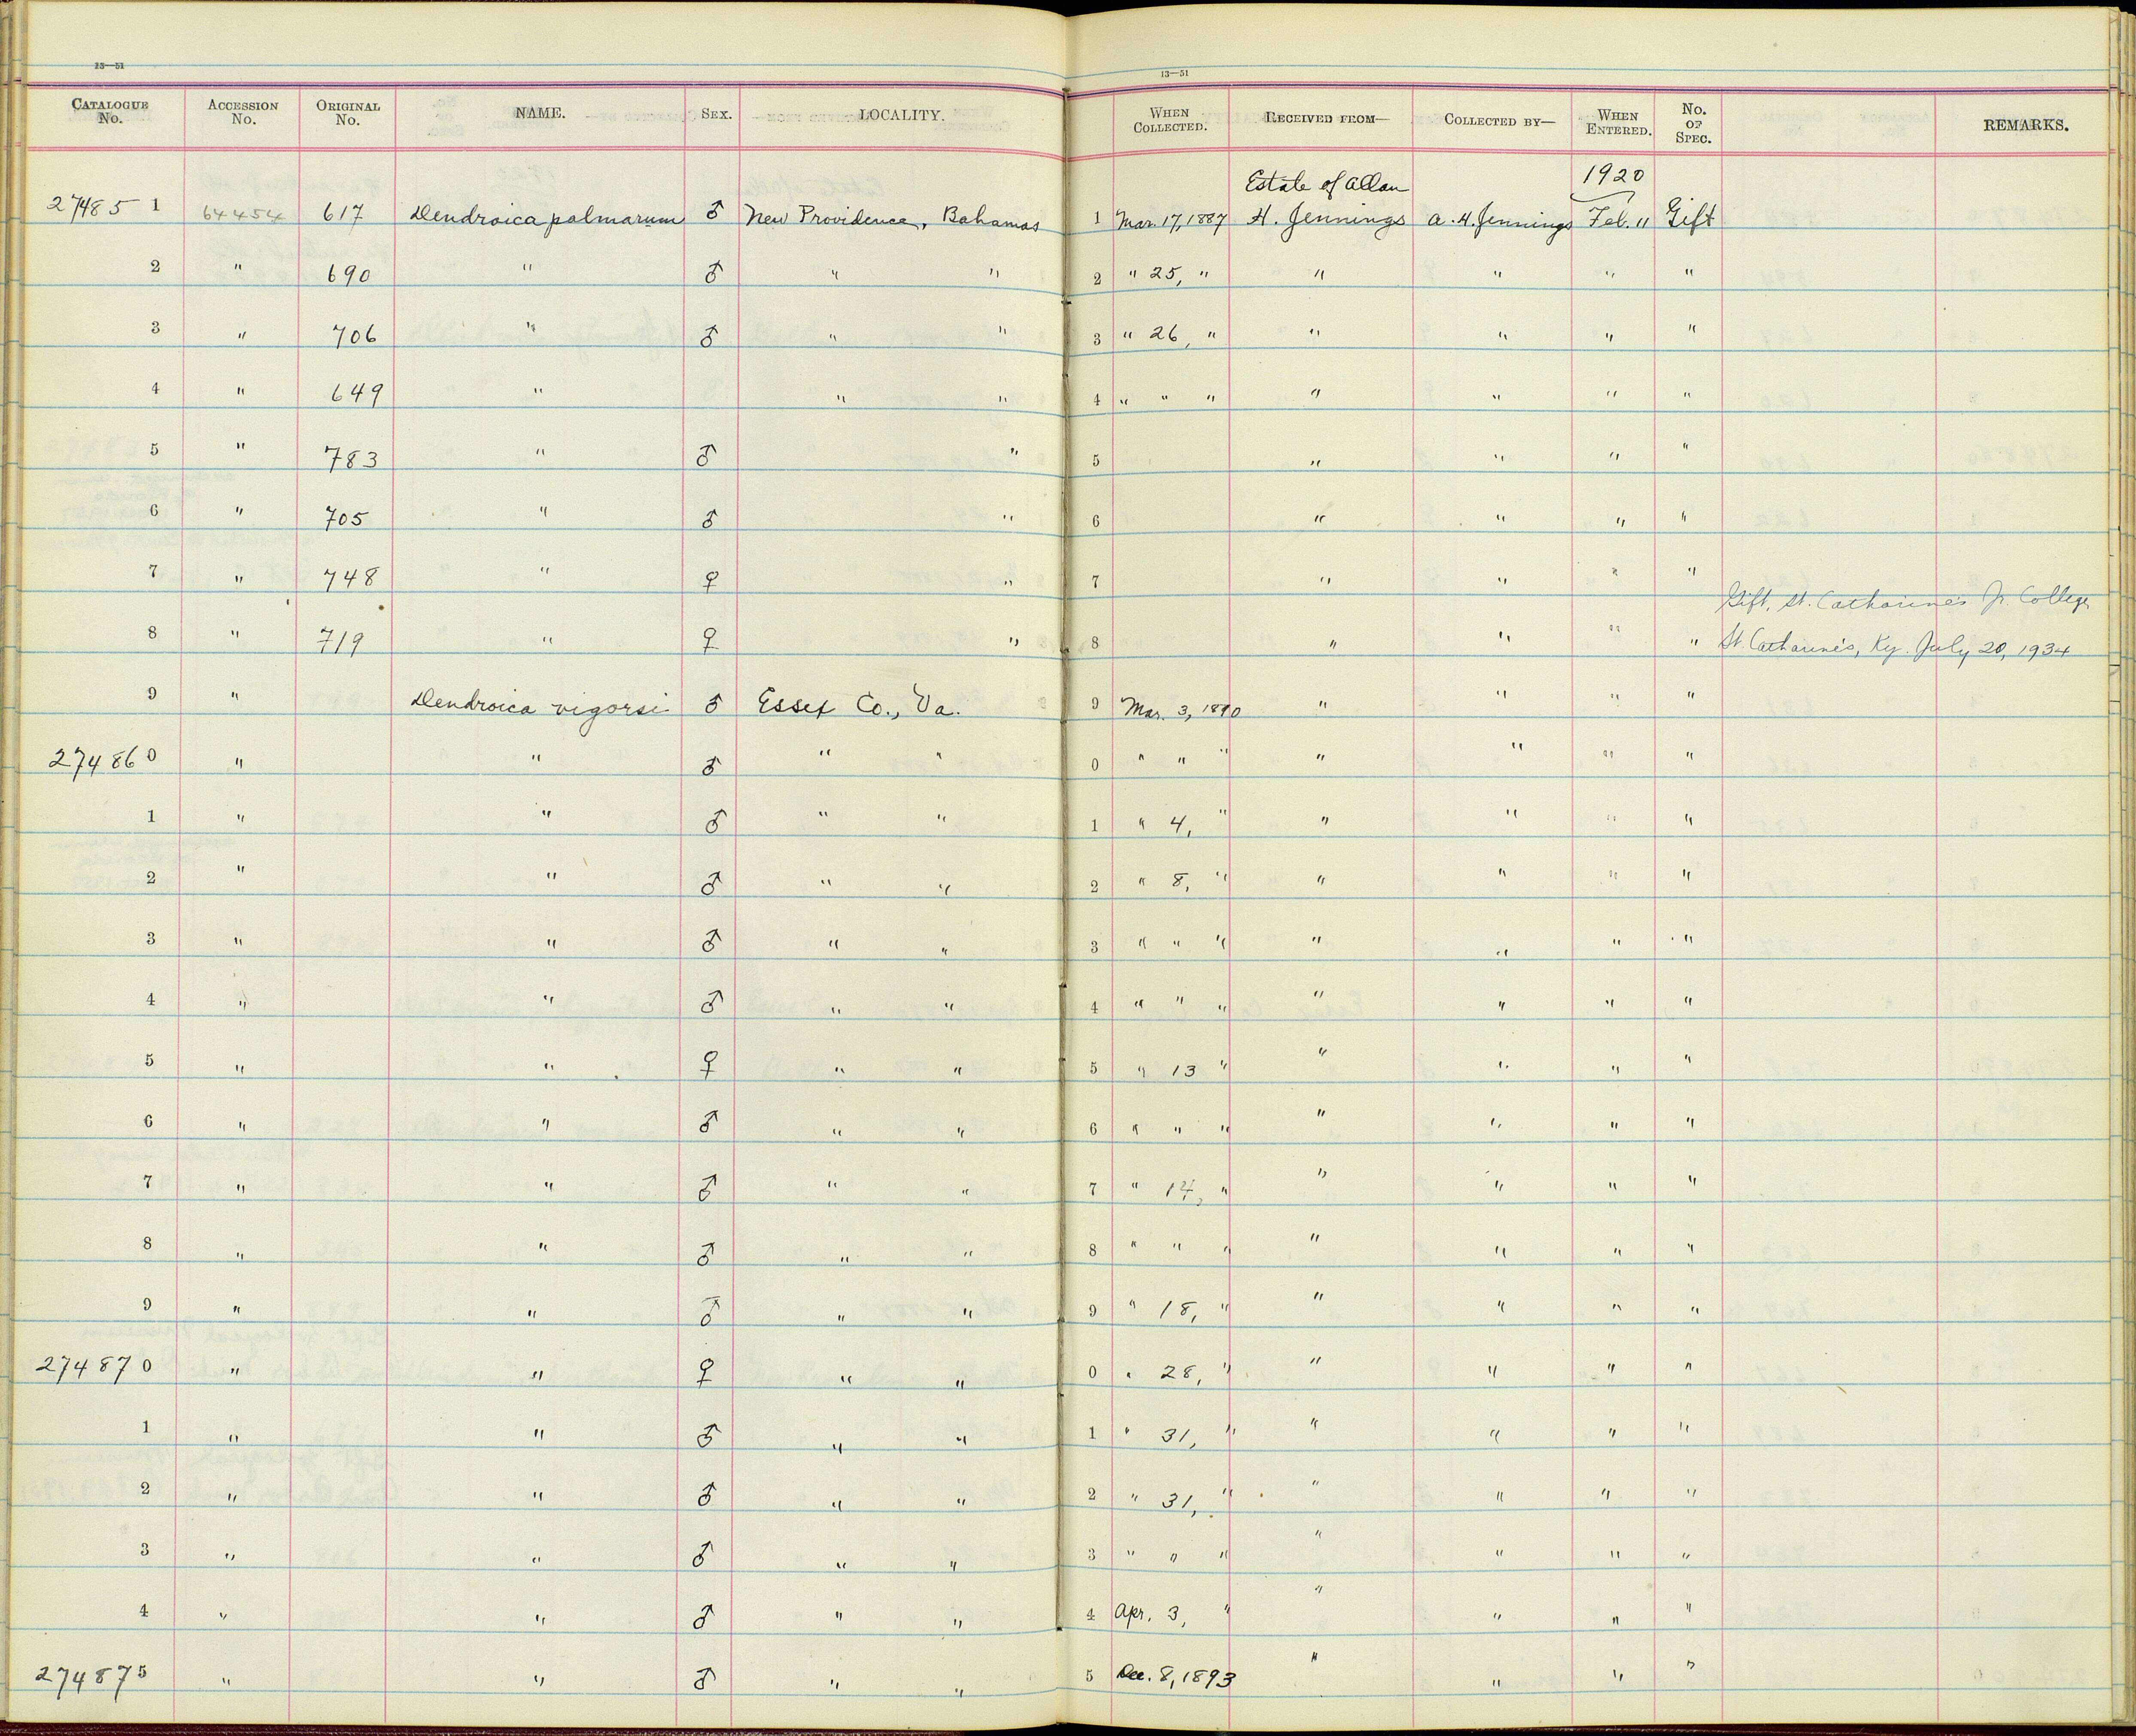 13—51
13—51
CATALOGUE No. ACCESSION No. ORIGINAL No. NAME. SEX. LOCALITY. WHEN COLLECTED. RECEIVED FROM— COLLECTED BY— WHEN ENTERED. No. OF SPEC. REMARKS.
Estate of Allan 1920
27485 1 64454 617 Dendroica palmarum ♂ New Providence, Bahamas 1 Mar. 17, 1887 H. Jennings A. H. Jennings Feb. 11 Gift
2 " 690 " ♂ " " 2 " 25, " " " " "
3 " 706 " ♂ " " 3 " 26, " " " " "
4 " 649 " " " 4 " " " " " " "
5 " 783 " ♂ " 5 " " " "
6 " 705 " ♂ " 6 " " " "
7 " 748 " ♀ " 7 " " " "
Gift, St. Catharine's Jr. College
8 " 719 " ♀ " 8 " " " " St. Catharine's, Ky. July 20, 1934
9 " Dendroica vigorsi ♂ Essex Co., Va. 9 Mar. 3, 1890 " " " "
27486 0 " " ♂ " " 0 " " " " " " "
1 " " ♂ " " 1 " 4, " " " " "
2 " " ♂ " " 2 " 8, " " " " "
3 " " ♂ " " 3 " " " " " " "
4 " " ♂ " " 4 " " " " " " "
5 " " ♀ " " 5 " 13 " " " " "
6 " " ♂ " " 6 " " " " " " "
7 " " ♂ " " 7 " 14, " " " " "
8 " " ♂ " " 8 " " " " " " "
9 " " ♂ " " 9 " 18, " " " " "
27487 0 " " ♀ " " 0 " 28, " " " " "
1 " " ♂ " " 1 " 31, " " " " "
2 " " ♂ " " 2 " 31, " " " " "
3 " " ♂ " " 3 " " " " " " "
4 " " ♂ " " 4 Apr. 3, " " " " "
27487 5 " " ♂ " " 5 Dec. 8, 1893 " " " "